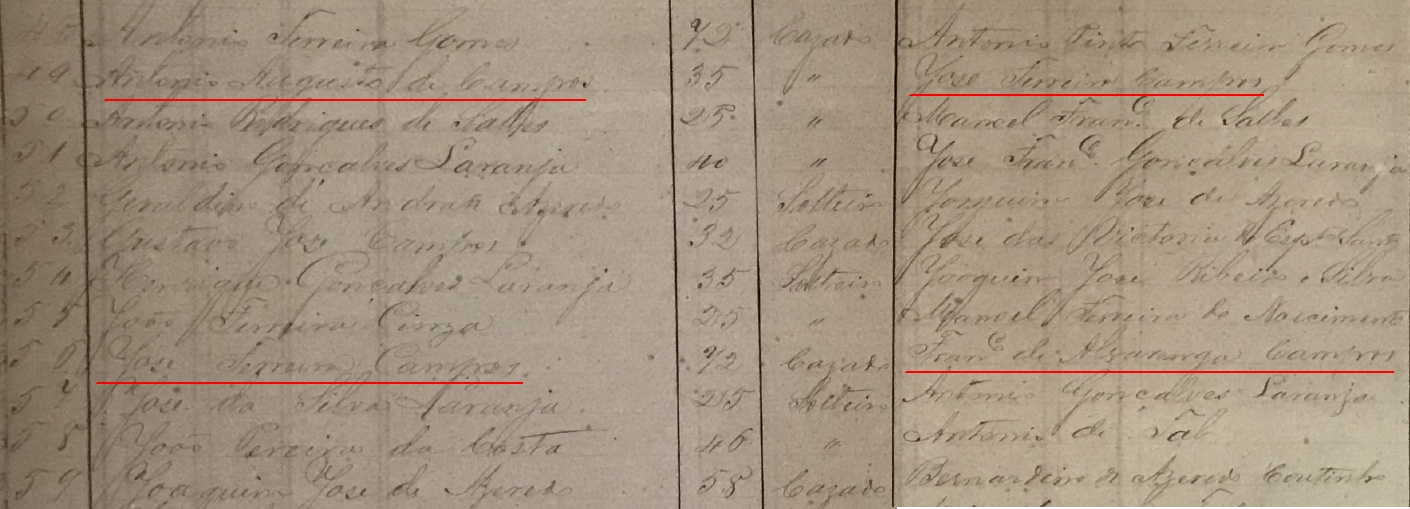 48 Antonio Ferreira Gomes 72 Cazado Antonio Pinto Ferreira Gomes
49 Antonio Augusto de Campos 35 " Jose Ferreira Campos
50 Antonio Rodrigues de Salles 25 " Manoel Franco. de Salles
51 Antonio Gonçalves Laranja 40 " Jose Franco. Gonçalves Laranja
52 de Andrade Azeredo 25 Solteiro Joaquim Jose de Azeredo
53 Gustavo Jose Campos 32 Cazado Jose das Espto Santo
54 Henrique Gonçalves Laranja 35 Solteiro Joaquim José Ribeiro e Silva
55 João Ferreira 25 " Manoel Ferreira do Nascimento
56 Jose Ferreira Campos 72 Cazado Franco de Alvarenga Campos
57 Jose da Silva Laranja 25 Solteiro Antonio Gonçalves Laranja
58 João Pereira da Costa 46 " Antonio de
59 Joaquim Jose de Azeredo 58 Cazado Bernardino de Azeredo Coutinho